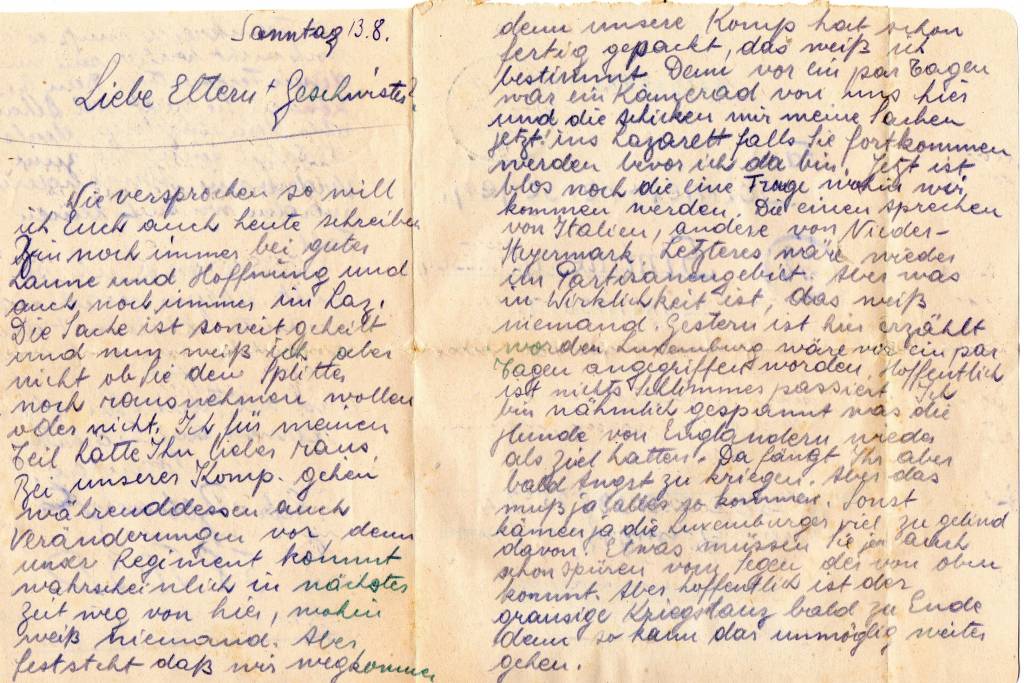 Sonntag 13.8.
Liebe Eltern + Geschwister
Wie versprochen so will
ich Euch auch heute schreiben
Bin noch immer bei guter
Laune und Hoffnung und
auch noch immer im Laz.
Die Sache ist soweit geheilt
und nun weiß ich aber
nicht ob sie den Splitter
noch rausnehmen wollen
oder nicht. Ich für meinen
Teil hätte Ihn lieber raus.
Bei unserer Komp. gehen
währenddessen auch
Veränderungen vor denn
unser Regiment kommt
wahrscheinlich in nächster
Zeit weg von hier, wohin
weiß niemand. Aber
feststeht daß wir wegkommen
denn unsere Komp hat schon
fertig gepackt, das weiß ich
bestimmt. Denn vor ein par Tagen
war ein Kamerad von uns hier
und die schicken mir meine Sachen
jetzt ins Lazarett falls Sie fortkommen
werden bevor ich da bin. Jetzt ist
blos noch die eine Frage wohin wir
kommen werden. Die einen sprechen
von Italien, andere von Nieder-
steyermark. Letzteres wäre wieder
im Partisanengebiet. Aber was
in Wirklichkeit ist, das weiß
niemand. Gestern ist hier erzählt
worden Luxemburg wäre vor ein par
Tagen angegriffen worden. Hoffentlich
ist nichts schlimmes passiert. Ich
bin nähmlich gespannt was die
Hunde von Engländern wieder
als Ziel hatten. Da fängt Ihr aber
bald Angst zu kriegen. Aber das
muß ja alles so kommen. Sonst
kämen ja die Luxemburger viel zu gelind
davon. Etwas müssen Sie ja auch
schon spüren vom Segen der von oben
kommt. Aber hoffentlich ist der
grausige Kriegstanz bald zu Ende
denn so kann das unmöglig weiter
gehen.